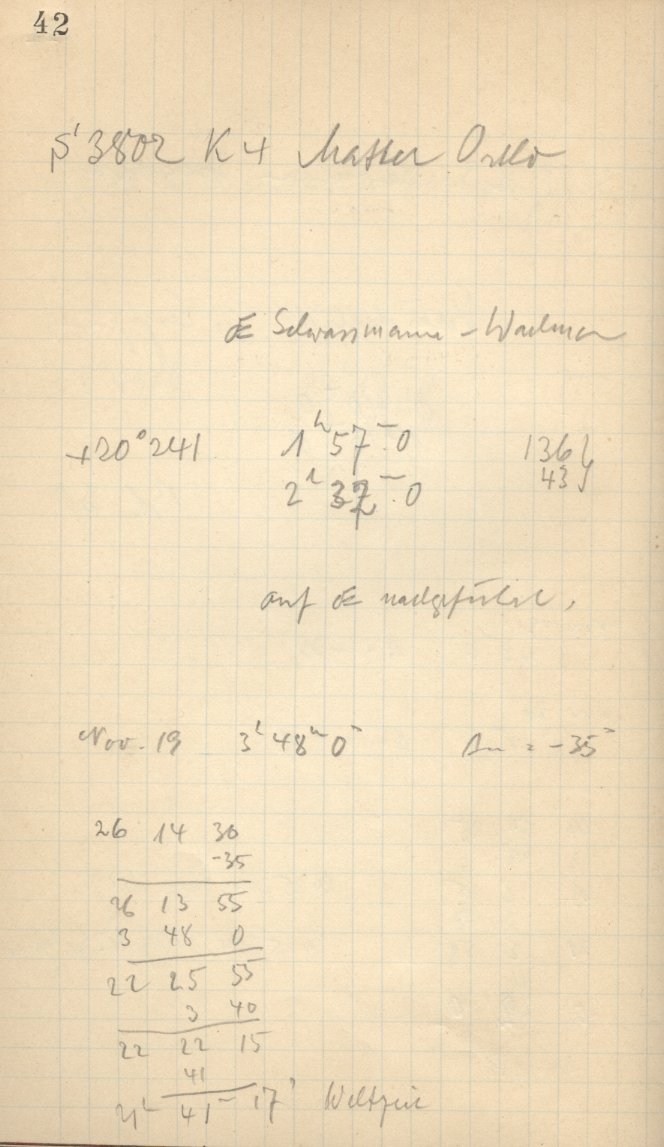 42
S 3802 K 4 Master Ortho
☄ Schwassmann - Wachmann
+20° 241 1ʰ 57ᵐ.0 136
2ʰ 37ᵐ.0 43
auf ☄ nachgeführt.
Nov. 19 3ʰ 48ᵐ 0ˢ Δu = -35ˢ
26 14 30
-35
26 13 55
3 48 0
22 25 55
3 40
22 22 15
41
41ᵐ 17ˢ Weltzeit